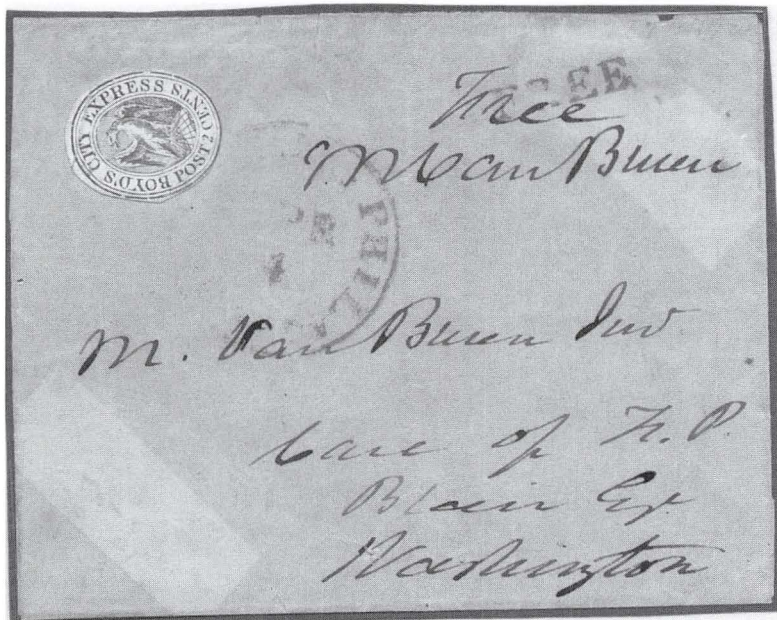 BOYD'S CITY EXPRESS POST 2 CENTS
FREE
Free
M Van Buren
PHIL
M. Van Buren Jur
Care of F. P.
Blair Esqr
Washington